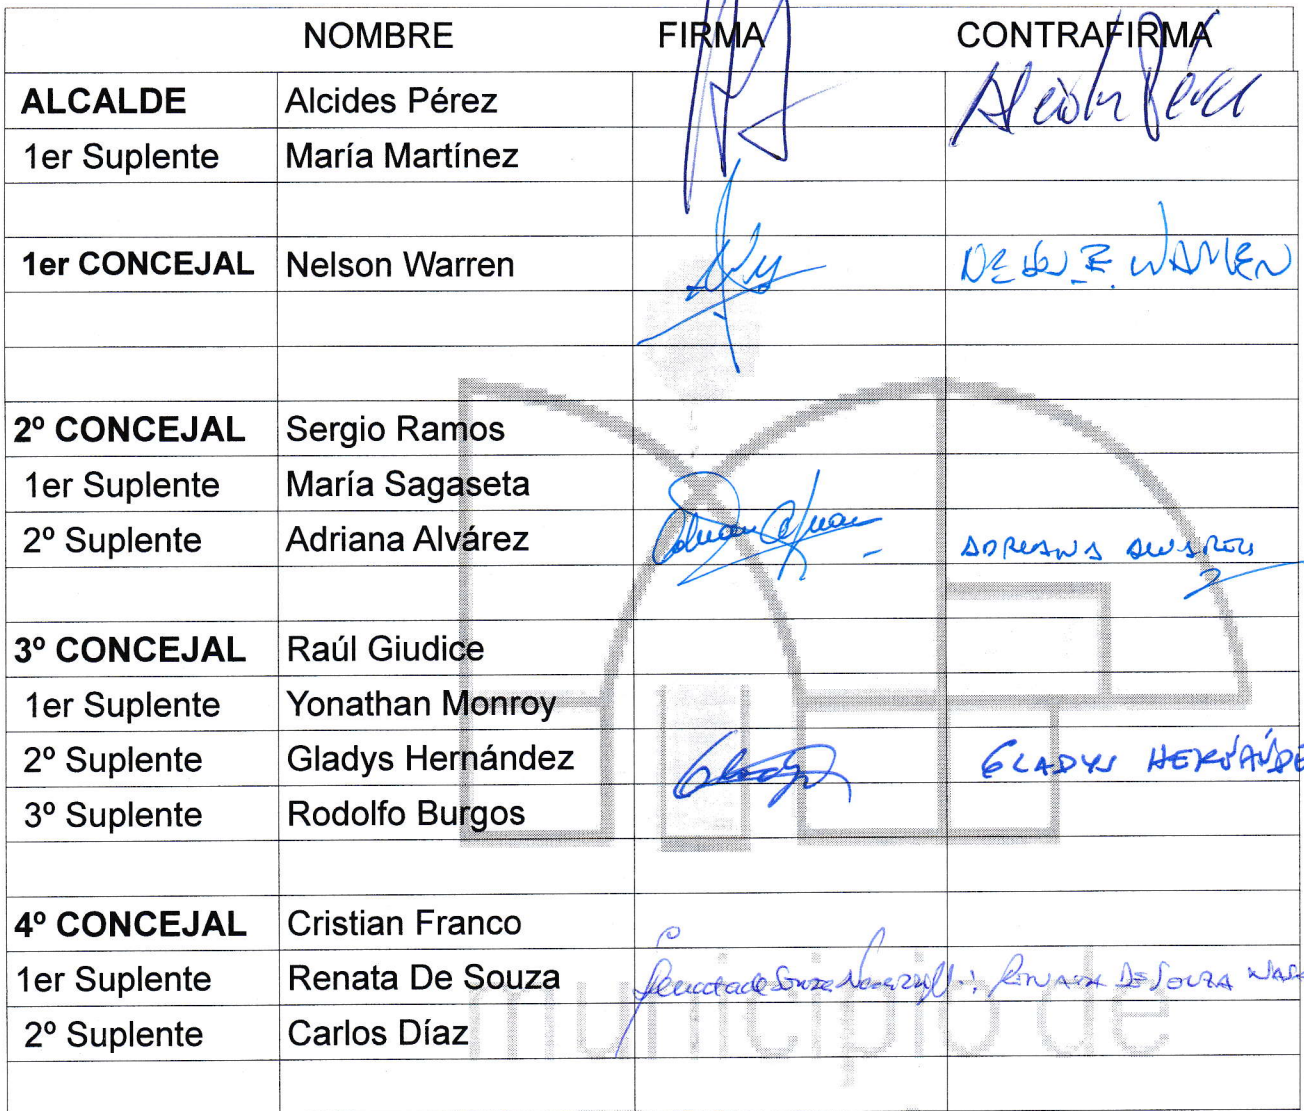 NOMBRE FIRMA CONTRAFIRMA
ALCALDE Alcides Pérez Alcides Pérez
1er Suplente María Martínez
1er CONCEJAL Nelson Warren WARREN
2º CONCEJAL Sergio Ramos
1er Suplente María Sagaseta
2º Suplente Adriana Alvárez ADRIANA ALVAREZ
3º CONCEJAL Raúl Giudice
1er Suplente Yonathan Monroy
2º Suplente Gladys Hernández Gladys GLADYS HERNÁNDE
3º Suplente Rodolfo Burgos
4º CONCEJAL Cristian Franco
1er Suplente Renata De Souza Renata de Souza RENATA DE SOUZA
2º Suplente Carlos Díaz
municipio de